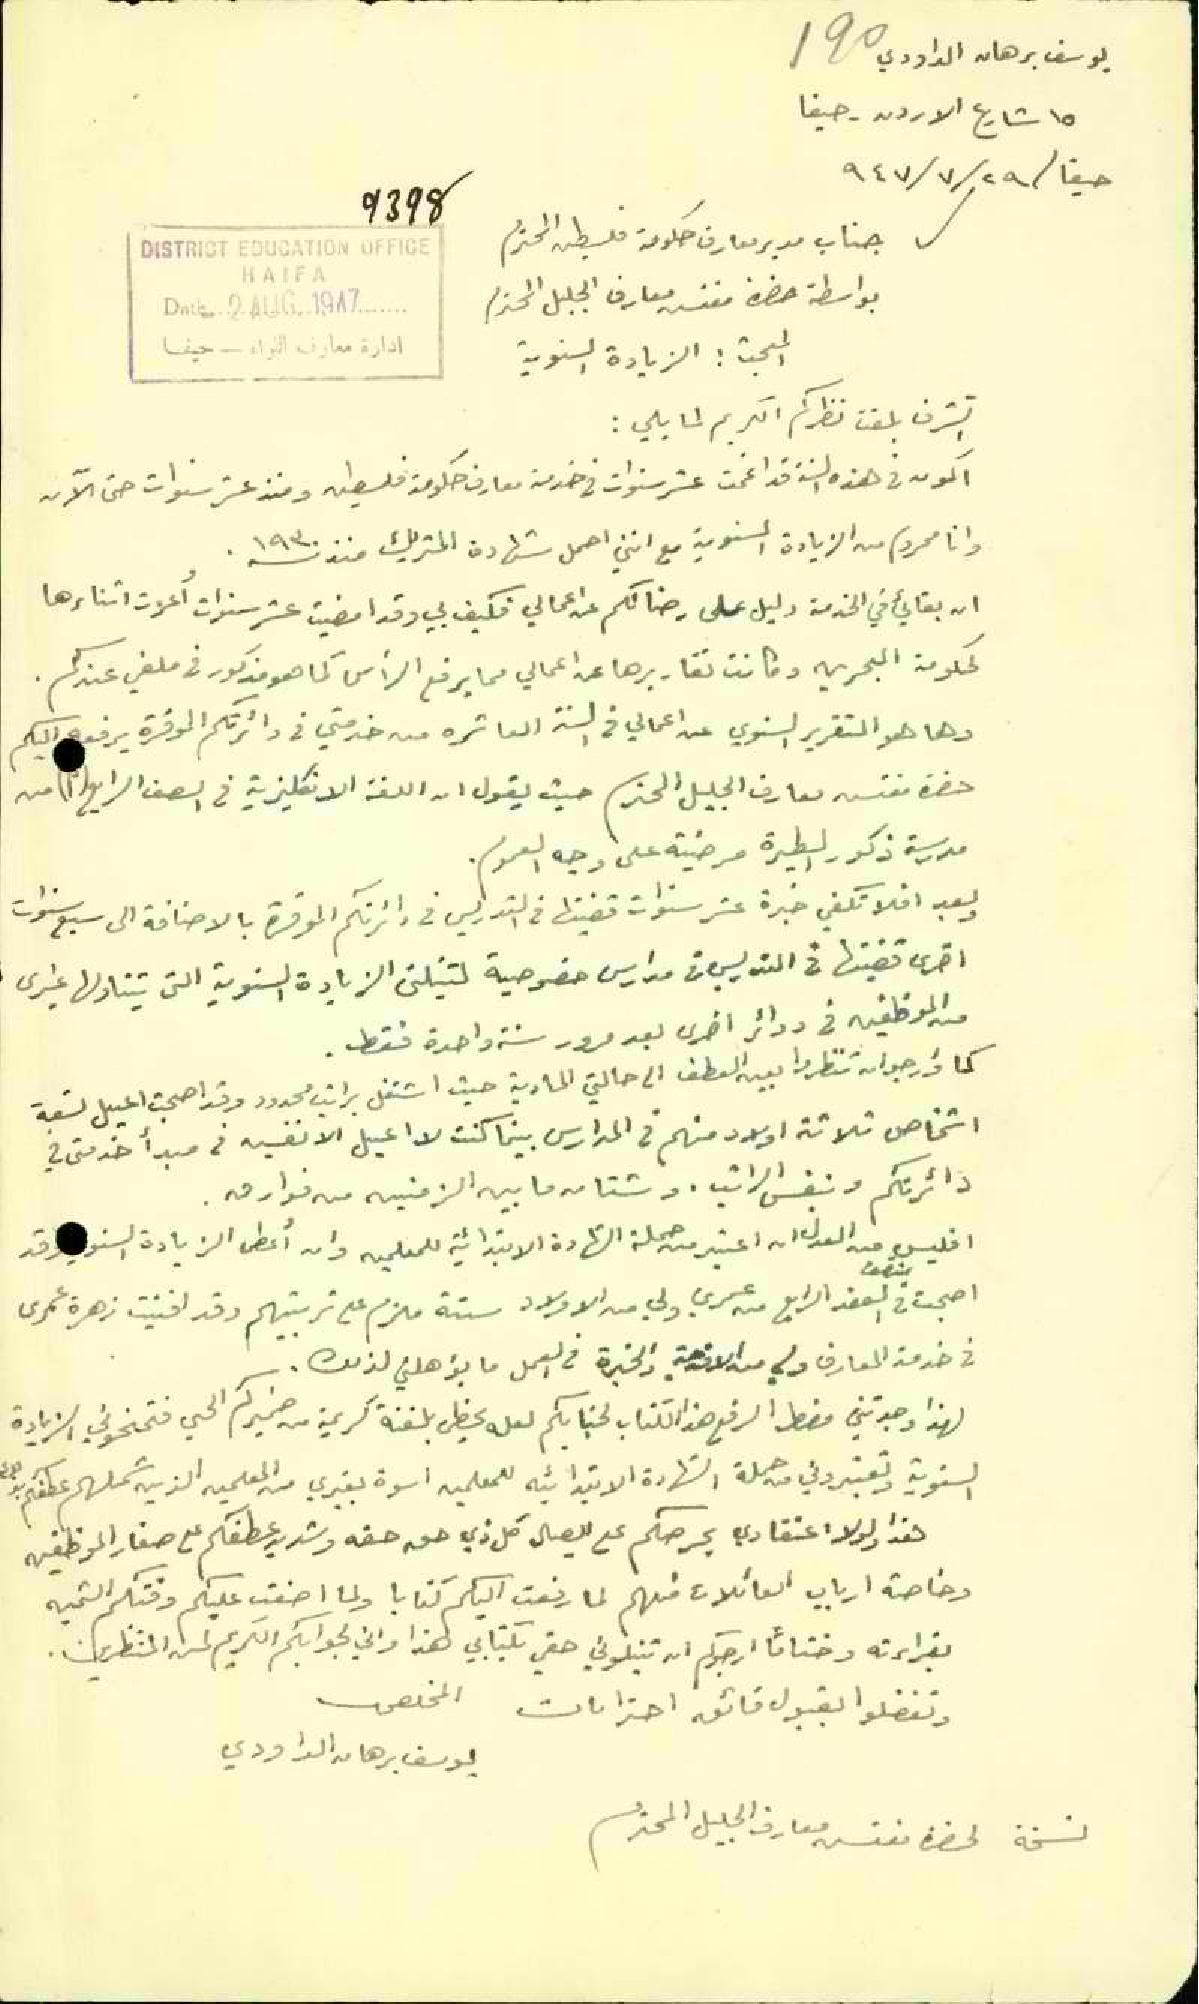 يوسف برهان الداودي 190
١٥ شارع الاردن - حيفا
حيفا / ٢٩/ ٧/ ٩٤٧
9398
DISTRICT EDUCATION OFFICE
HAIFA
Date 2 AUG 1947
ادارة معارف اللواء — حيفا
جناب مدير معارف حكومة فلسطين المحترم
بواسطة حضرة مفتش معارف الجليل المحترم
المبحث : الزيادة السنوية
اتشرف بلفت نظركم الكريم لما يلي :
اكون في هذه السنة قد اتممت عشر سنوات في خدمة معارف حكومة فلسطين ومنذ عشر سنوات حتى الآن
وانا محروم من الزيادة السنوية مع انني احمل شهادة المتريك منذ سنة ١٩٣٠ .
ان بقائي في الخدمة دليل على رضائكم عن اعمالي فكيف بي وقد امضيت عشر سنوات أُعرت اثناءها
لحكومة البحرين وكانت تقاريرها عن اعمالي مما يرفع الرأس كما هو مذكور في ملفي عندكم .
وها هو التقرير السنوي عن اعمالي في السنة العاشرة من خدمتي في دائرتكم الموقرة يرفعه اليكم
حضرة مفتش معارف الجليل المحترم حيث يقول ان اللغة الانكليزية في الصف الرابع (أ) من
مدرسة ذكور الطيرة مرضية على وجه العموم .
وبعد افلا تكفي خبرة عشر سنوات قضيتها في التدريس في دائرتكم الموقرة بالاضافة الى سبع سنوات
اخرى قضيتها في التدريس في مدارس خصوصية لتنيلني الزيادة السنوية التي يتناولها غيري
من الموظفين في دوائر اخرى بعد مرور سنة واحدة فقط .
كما وارجو ان تنظروا بعين العطف الى حالتي المادية حيث اشتغل براتب محدود وقد اصبحت اعيل تسعة
اشخاص ثلاثة اولاد منهم في المدارس بينما كنت لا اعيل الا نفسين في مبدأ خدمتي في
دائرتكم وبنفس الراتب . وشتان ما بين الزمنين من فوارق .
افليس من العدل ان اعتبر من حملة الشهادة الابتدائية للمعلمين وان أُعطى الزيادة السنوية وقد
اصبحت في منتصف العقد الرابع من عمري ولي من الاولاد ستة ملزم على تربيتهم وقد افنيت زهرة عمري
في خدمة المعارف ولي من الاقدمية والخبرة في العمل ما يؤهلني لذلك .
لهذا وجدتني مضطرا لرفع هذا الكتاب لجنابكم لعله يحظى بلفتة كريمة من ضميركم الحي فتمنحوني الزيادة
السنوية وتعتبروني من حملة الشهادة الابتدائيه للمعلمين اسوة بغيري من المعلمين الذين شملهم عطفكم
هذا ولولا اعتقادي بحرصكم على ايصال كل ذي حق حقه وشديد عطفكم على صغار الموظفين
وخاصة ارباب العائلات منهم لما رفعت اليكم كتابا ولما اضعت عليكم وقتكم الثمين
بقراءته وختاماً ارجوكم ان تنيلوني حقي بكتابي هذا واني لجوابكم الكريم لمن المنتظرين .
وتفضلوا بقبول فائق احتراماتي المخلص
يوسف برهان الداودي
نسخة لحضرة مفتش معارف الجليل المحترم